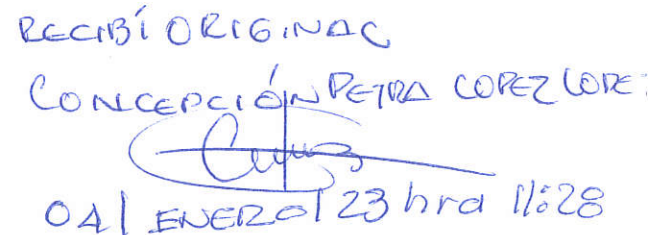 RECIBÍ ORIGINAL
CONCEPCIÓN PETRA LOPEZ LOPEZ
04/ENERO/23 hra 11:28